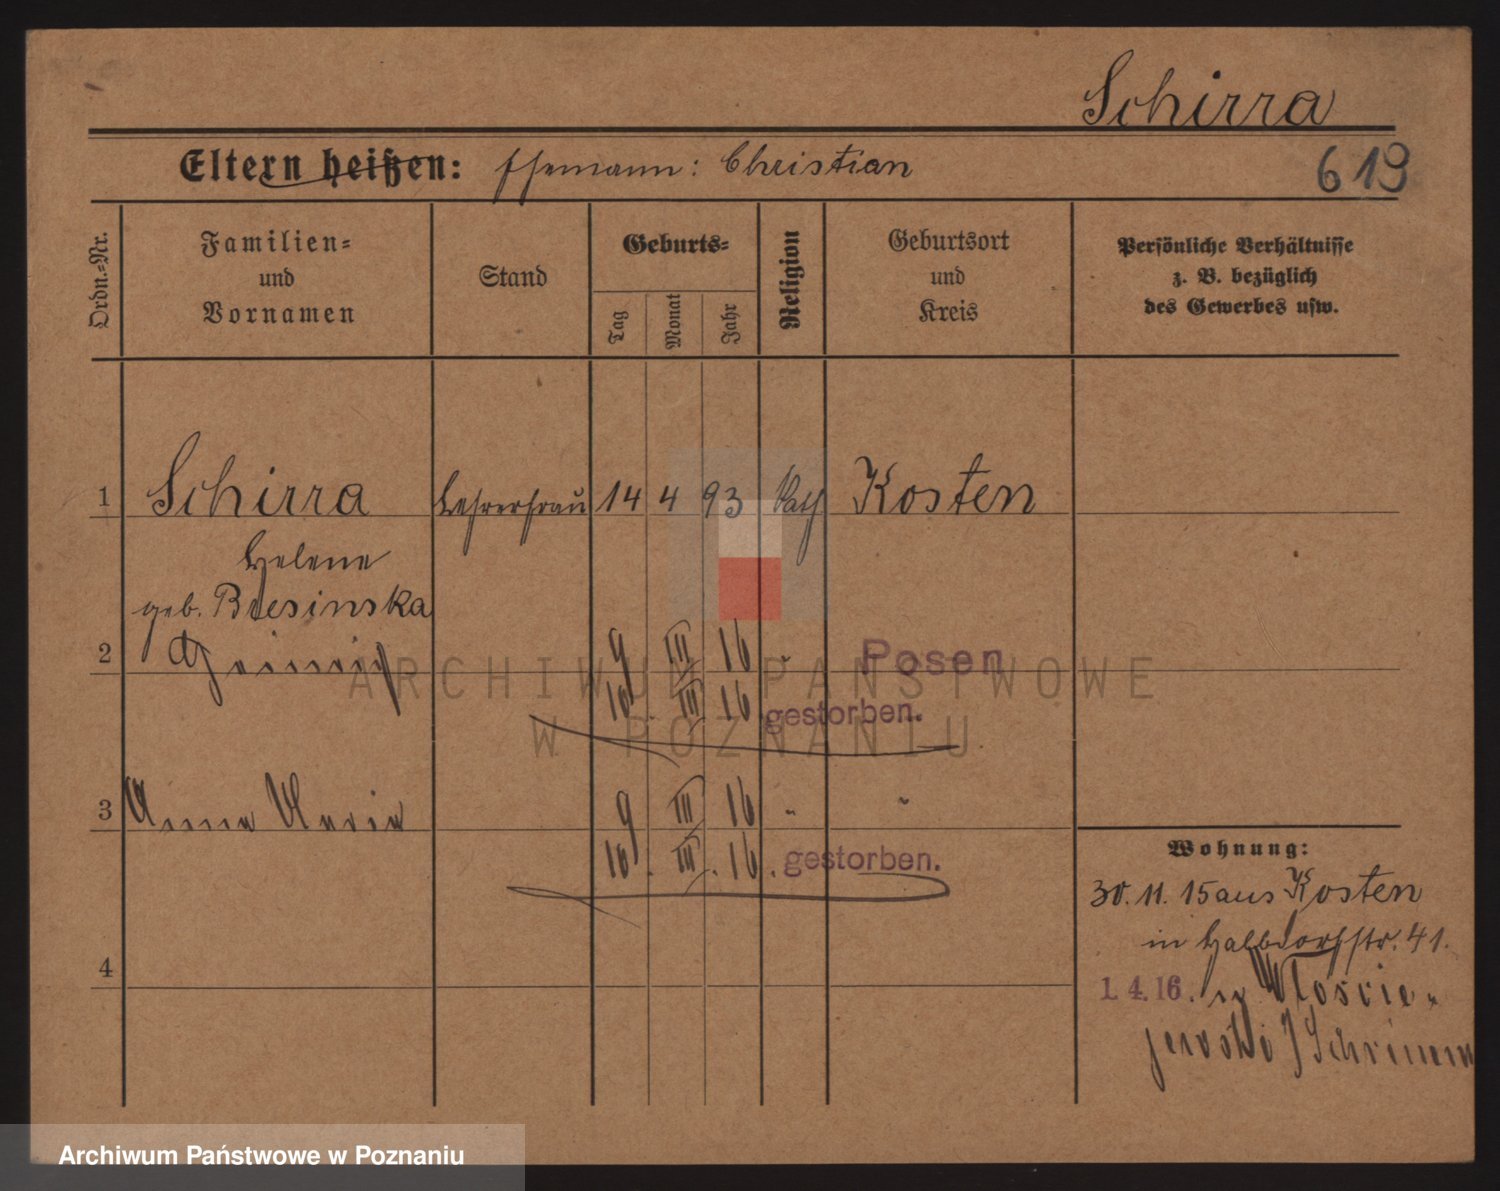 Schirra
Eltern heißen: Ehemann: Christian
619
Ordn.=Nr.
Familien=
und
Vornamen
Stand
Geburts=
Tag
Monat
Jahr
Religion
Geburtsort
und
Kreis
Persönliche Verhältnisse
z. B. bezüglich
des Gewerbes usw.
1 Schirra Lehrerfrau 14 4 93 Kath Kosten
Helene
geb. Bresinska
2 9 III 16 " Posen
10. III 16 gestorben.
3 Anna Maria 9 III 16 " "
10. III. 16. gestorben.
4
Wohnung:
30. 11. 15 aus Kosten
in Halbdorfstr. 41.
1. 4. 16. n Wloscie-
jewski Schrimm
ARCHIWUM PAŃSTWOWE
W POZNANIU
Archiwum Państwowe w Poznaniu